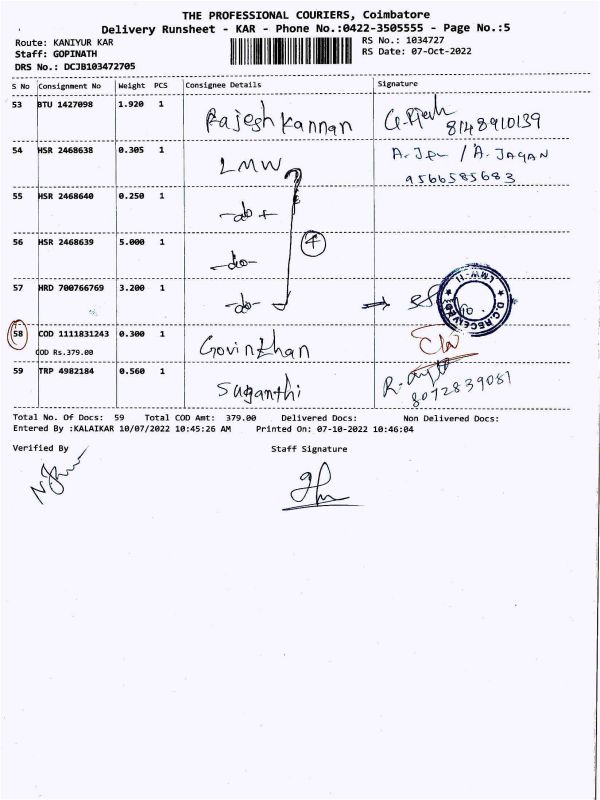 THE PROFESSIONAL COURIERS, Coimbatore
Delivery Runsheet - KAR - Phone No.:0422-3505555 - Page No.:5
Route: KANIYUR KAR RS No.: 1034727
Staff: GOPINATH RS Date: 07-Oct-2022
DRS No.: DCJB103472705
S No Consignment No Weight PCS Consignee Details Signature
53 BTU 1427098 1.920 1 Rajesh Kannan 8148910139
54 HSR 2468638 0.305 1 LMW A. JAGAN
9566585683
55 HSR 2468640 0.250 1 -do-
56 HSR 2468639 5.000 1 -do- 4
57 HRD 700766769 3.200 1 -do- D.C.RECEIVED LMW-II
58 COD 1111831243 0.300 1 Govinthan
COD Rs.379.00
59 TRP 4982184 0.560 1 Suganthi 8072839081
Total No. Of Docs: 59 Total COD Amt: 379.00 Delivered Docs: Non Delivered Docs:
Entered By :KALAIKAR 10/07/2022 10:45:26 AM Printed On: 07-10-2022 10:46:04
Verified By Staff Signature